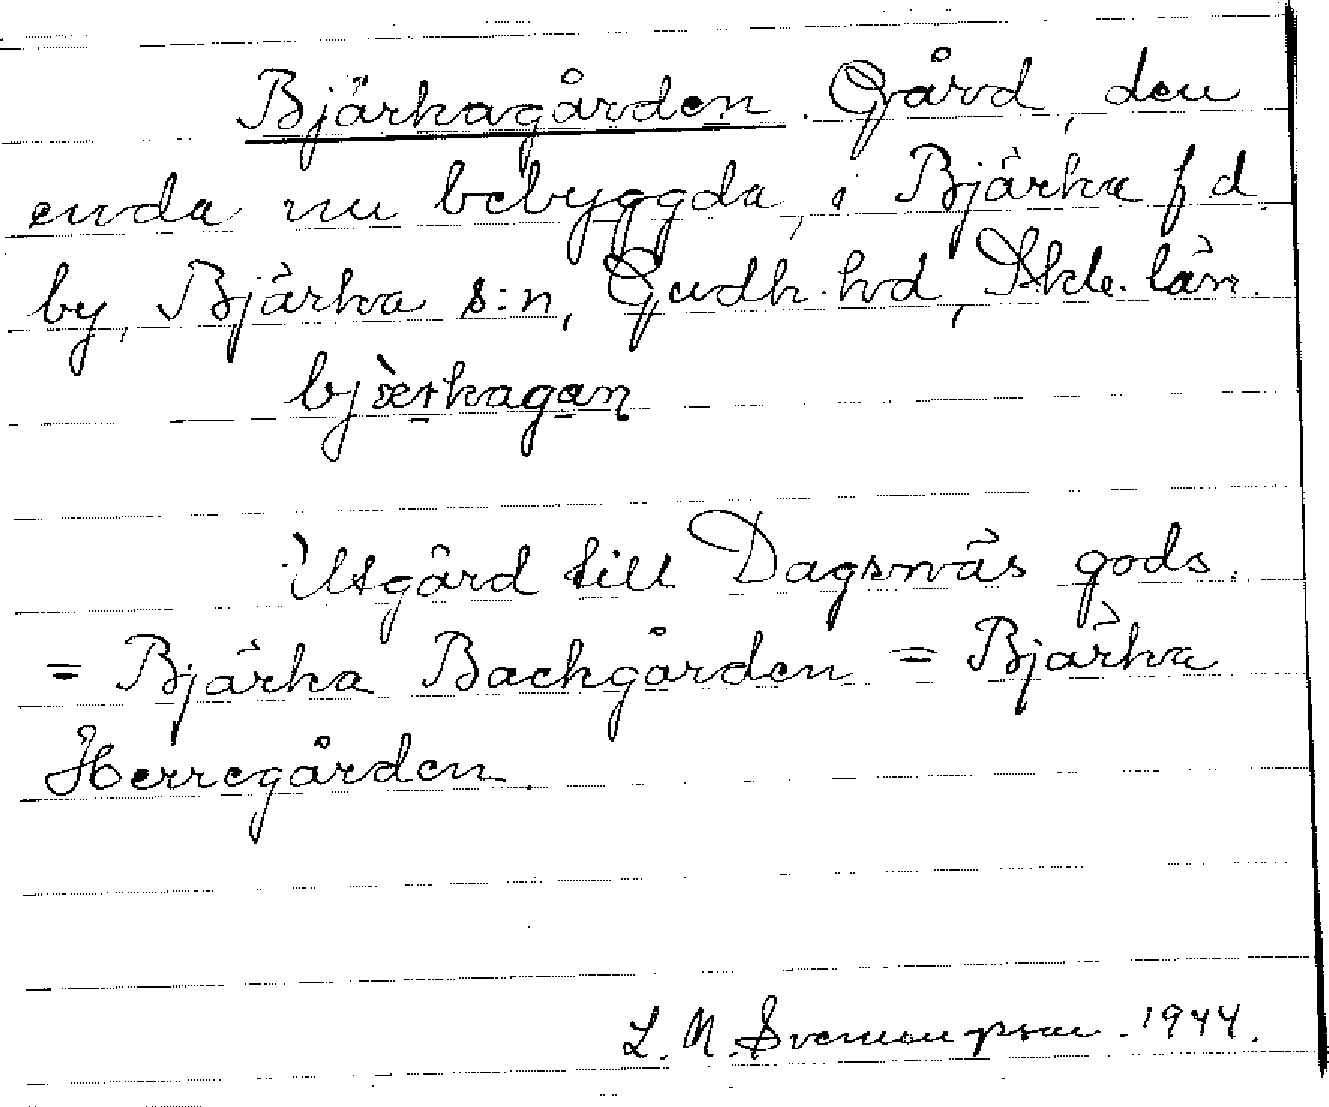 Bjärkagården. Gård, den
enda nu bebyggda, i Bjärka f d
by, Bjärka s:n, Gudh. hd, Skde. län.
bjæ̀rkagan
Utgård till Dagsnäs gods.
= Bjärka Backgården = Bjärka
Herregården.
L. M. Svenungsson. 1944.